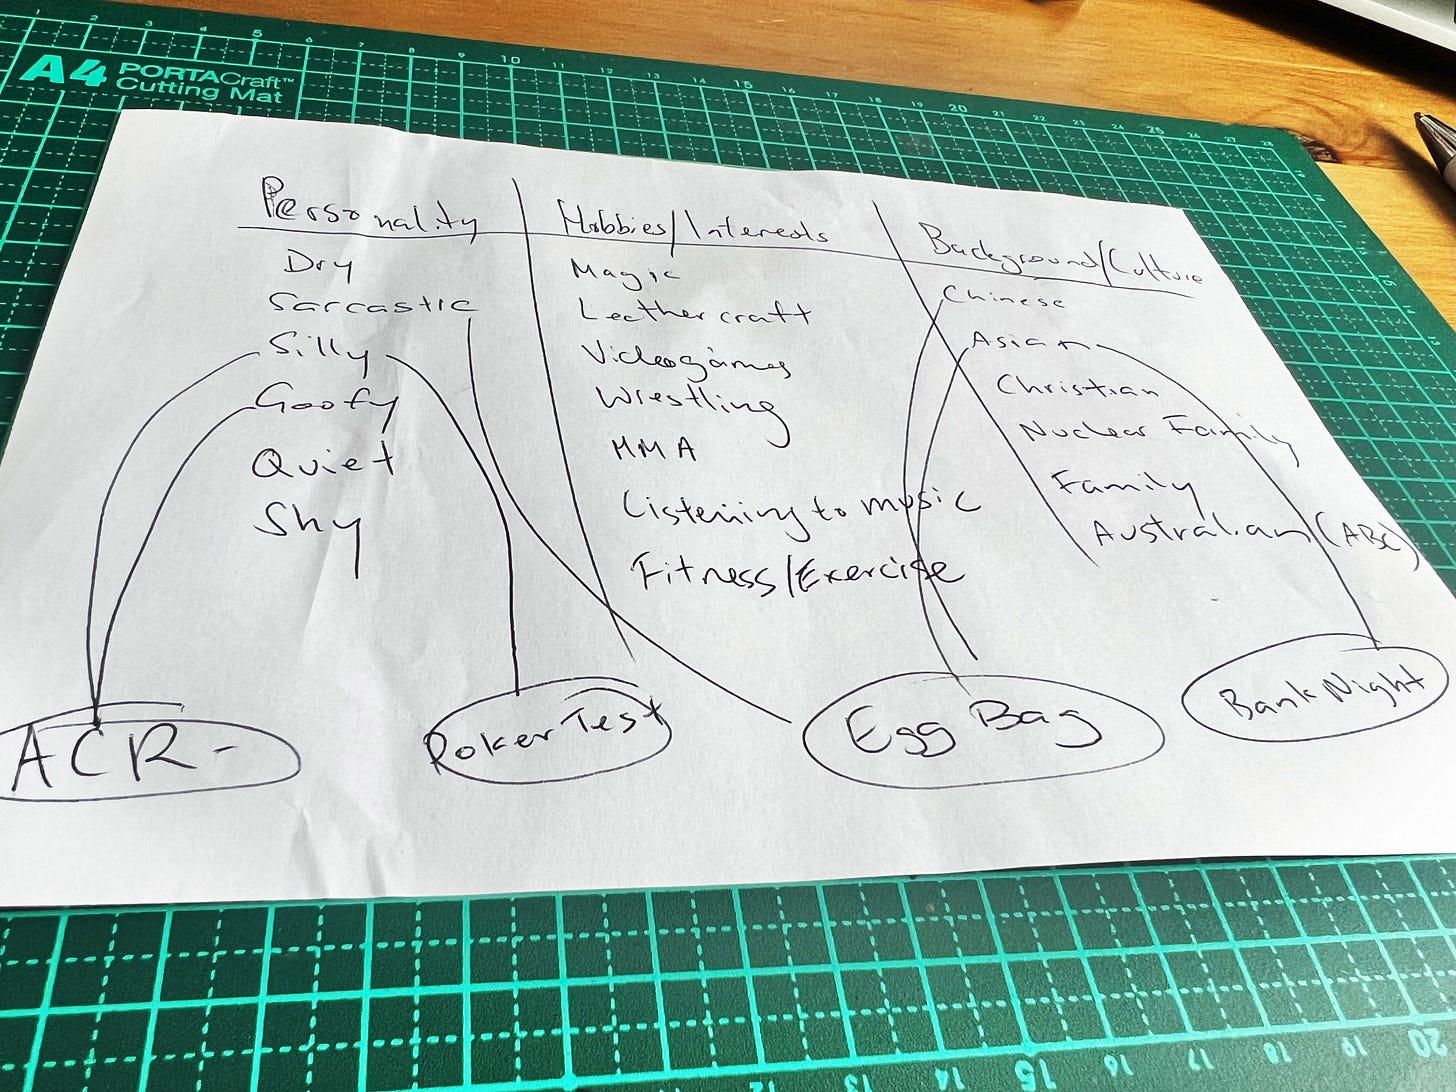 A4 PORTACraft™
Cutting Mat
Personality
Dry
Sarcastic
Silly
Goofy
Quiet
Shy
Hobbies/Interests
Magic
Leather craft
Videogames
Wrestling
MMA
Listening to music
Fitness/Exercise
Background/Culture
Chinese
Asian
Christian
Nuclear Family
Family
Australian (ABC)
ACR -
Poker Test
Egg Bag
Bank Night